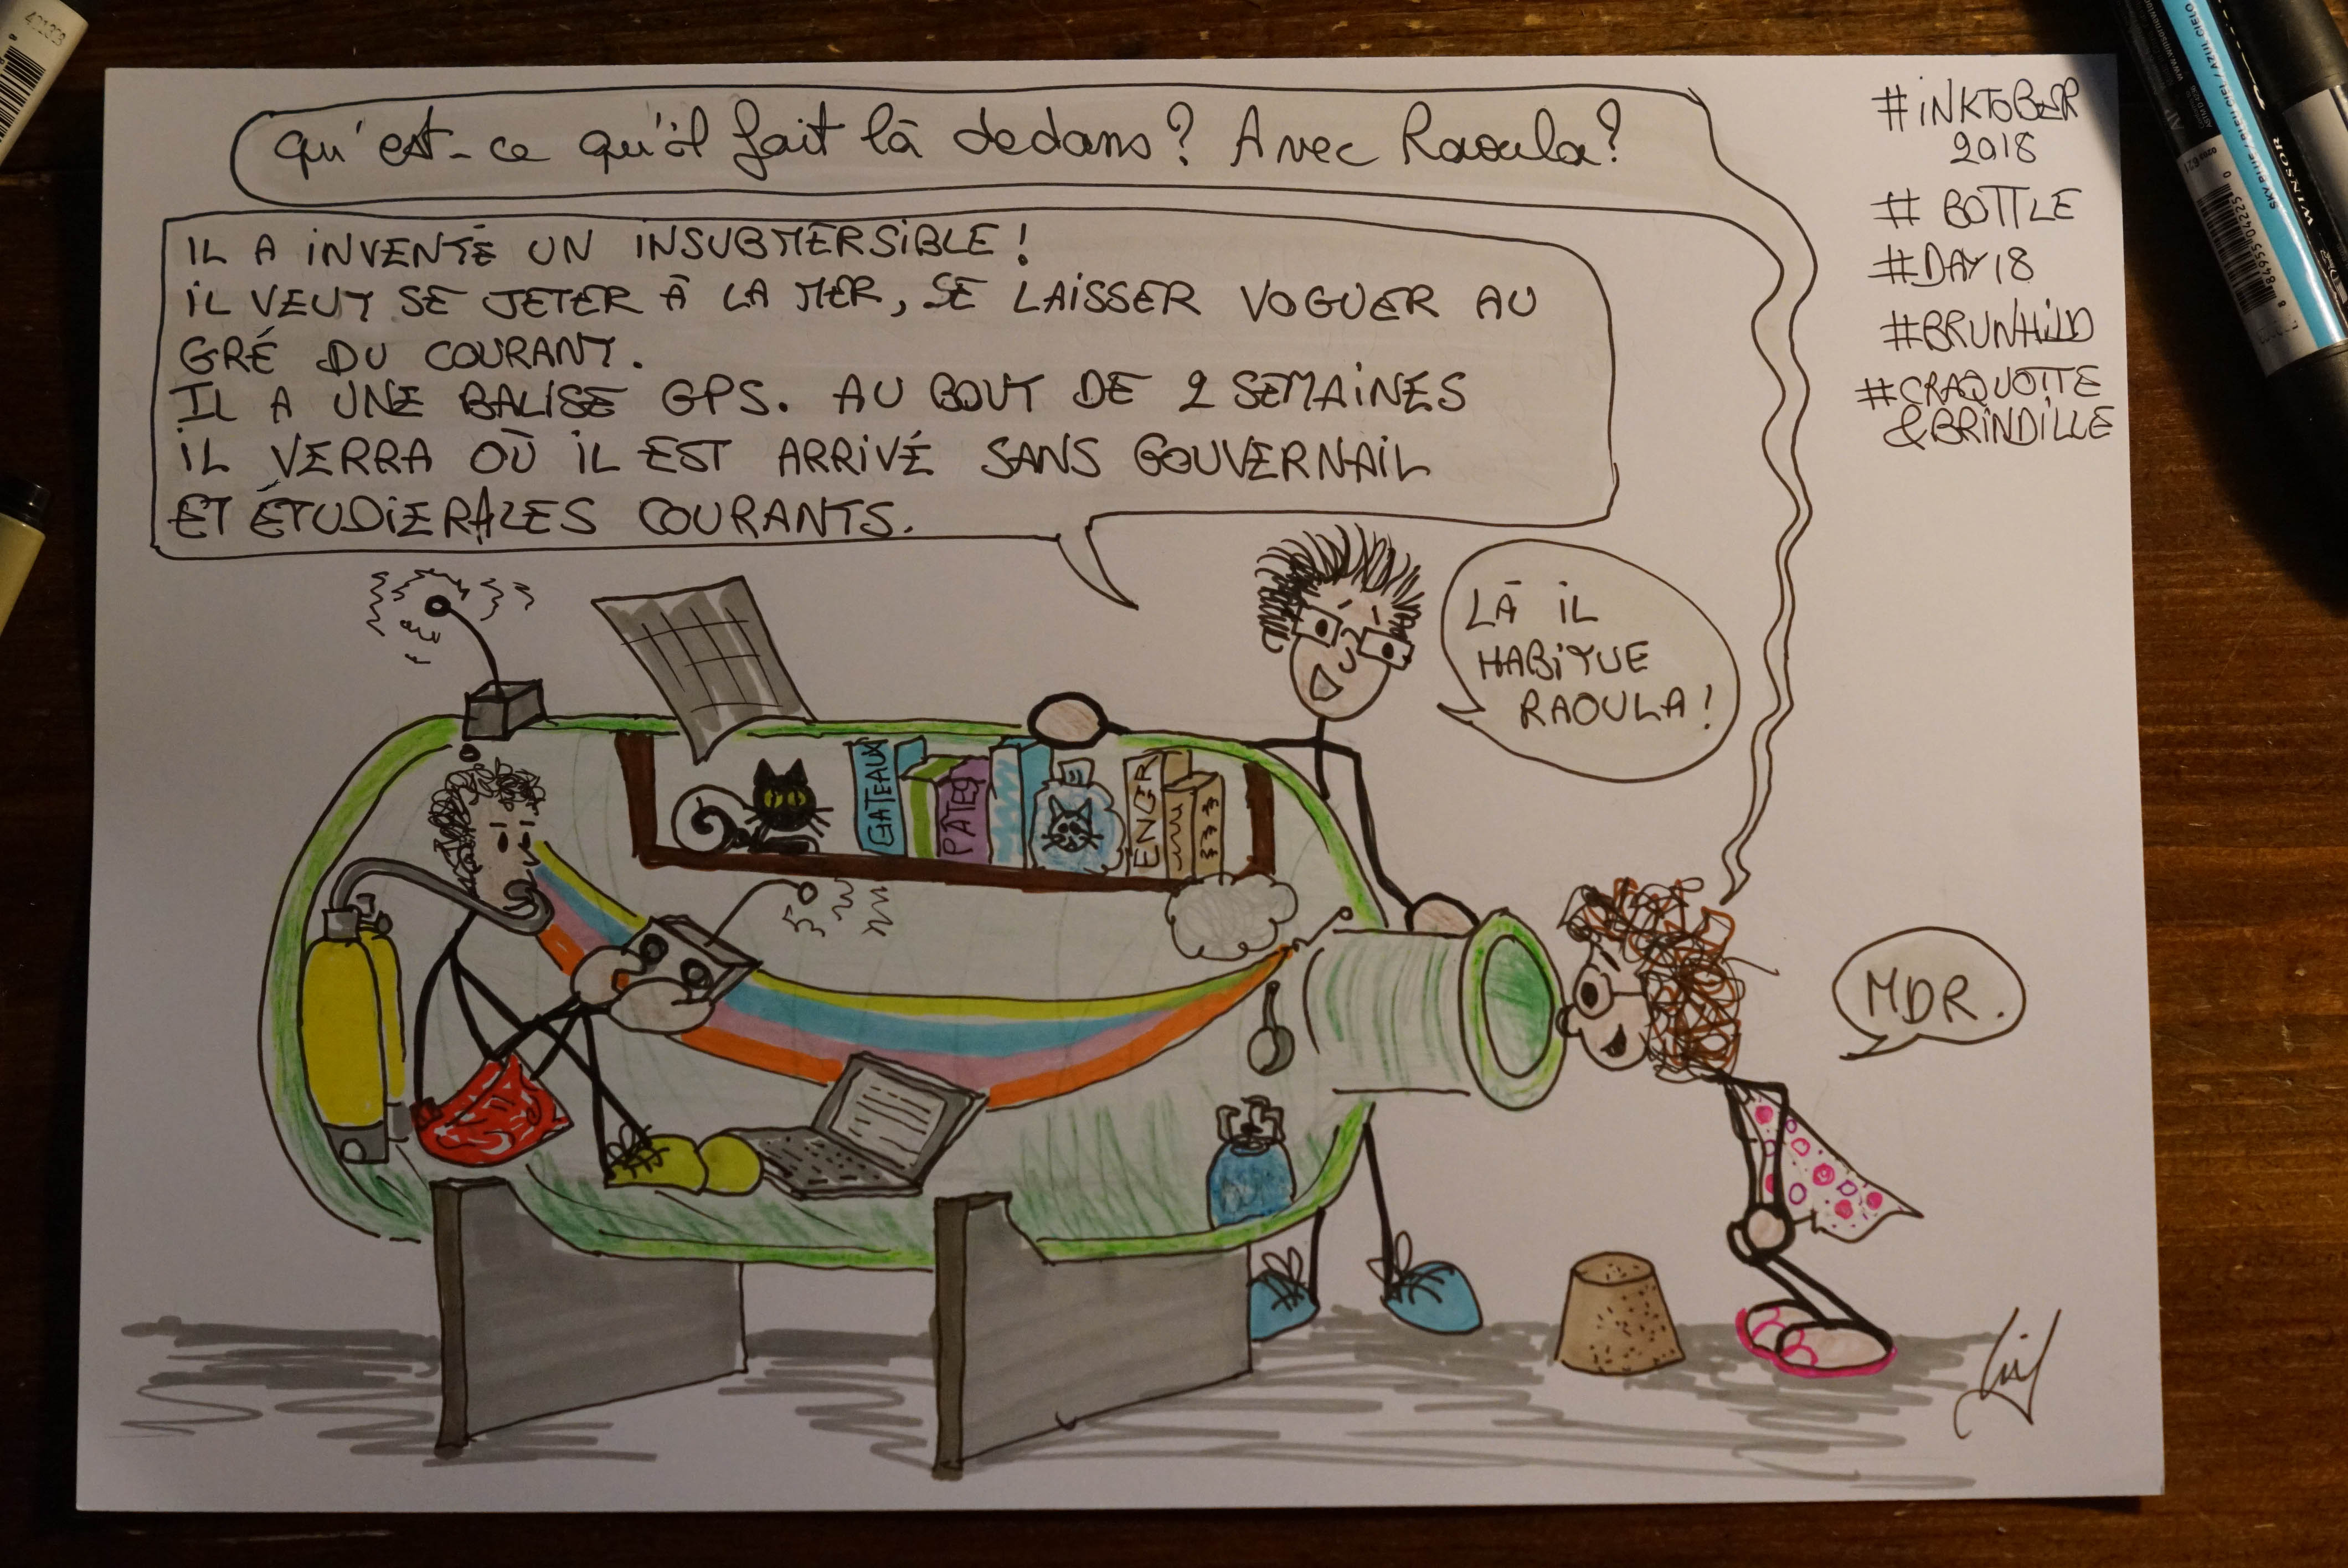 qu'est-ce qu'il fait là dedans? Avec Raoula?
IL A INVENTÉ UN INSUBMERSIBLE!
IL VEUT SE JETER À LA MER, SE LAISSER VOGUER AU
GRÉ DU COURANT.
IL A UNE BALISE GPS. AU BOUT DE 2 SEMAINES
IL VERRA OÙ IL EST ARRIVÉ SANS GOUVERNAIL
ET ÉTUDIERA LES COURANTS.
LÀ IL
HABITUE
RAOULA!
MDR.
GATEAUX
PÂTES
ENCR
#INKTOBER
2018
# BOTTLE
#DAY18
#BRUNHILD
#CRAQUOTTE
&BRINDILLE
421308
WINSOR